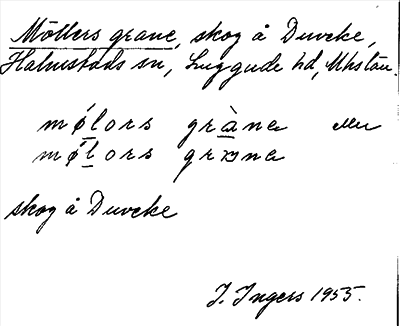 Möllers grane, skog å Duveke,
Halmstads sn, Luggude hd, Mhs län.
møl̲ors gràna̲ eller
møl̲ors grɒna
skog å Duveke
I. Ingers 1955.